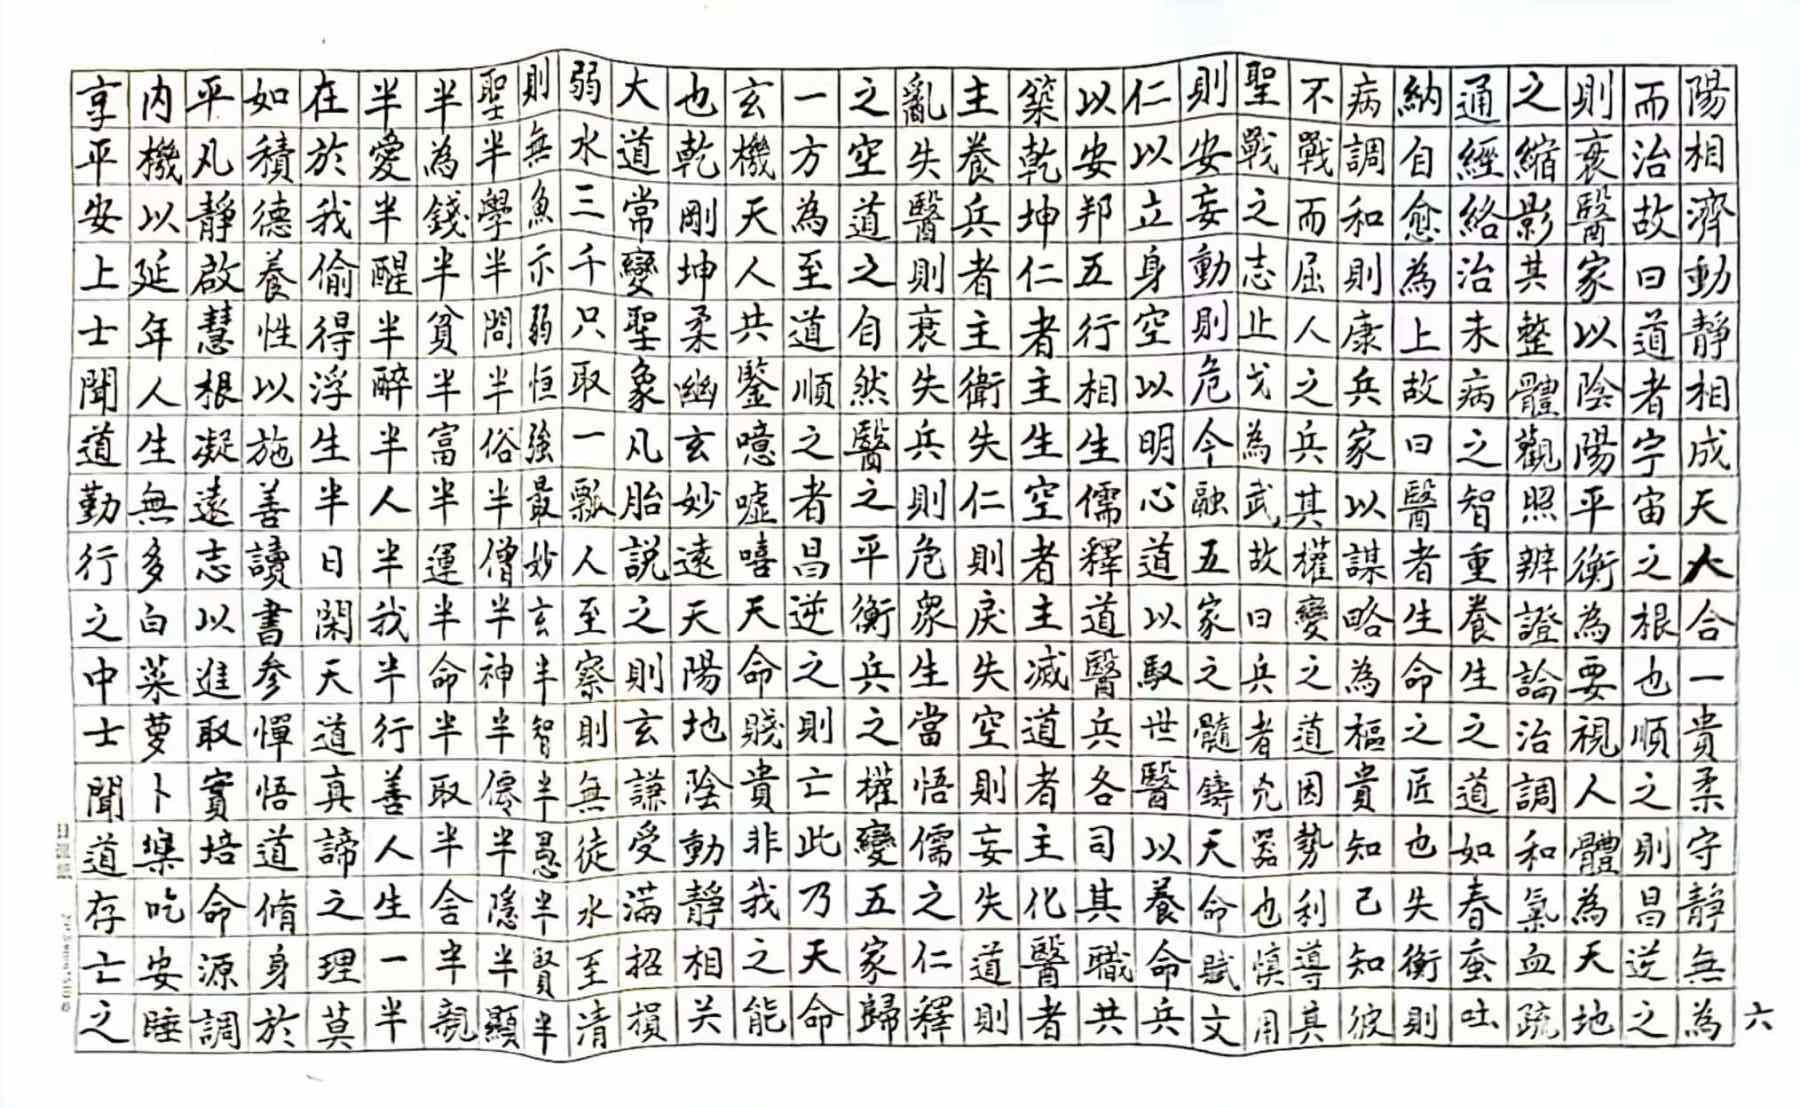 陽相濟動靜相成天大合一貴柔守靜無為
而治故曰道者宇宙之根也順之則昌逆之
則衰醫家以陰陽平衡為要視人體為天地
之縮影其整體觀照辨證論治調和氣血疏
通經絡治未病之智重養生之道如春蚕吐
納自愈為上故曰醫者生命之匠也失衡則
病調和則康兵家以謀略為樞貴知己知彼
不戰而屈人之兵其權變之道因勢利導其
聖戰之志止戈為武故曰兵者兇器也慎用
則安妄動則危今融五家之髓鑄天命賦文
仁以立身空以明心道以馭世醫以養命兵
以安邦五行相生儒釋道醫兵各司其職共
築乾坤仁者主生空者主滅道者主化醫者
主養兵者主衛失仁則戾失空則妄失道則
亂失醫則衰失兵則危衆生當悟儒之仁釋
之空道之自然醫之平衡兵之權變五家歸
一方為至道順之者昌逆之則亡此乃天命
玄機天人共鑒噫嘘嘻天命賤貴非我之能
也乾剛坤柔幽玄妙遠天陽地陰動靜相关
大道常變聖象凡胎説之則玄謙受滿招損
弱水三千只取一瓢人至察則無徒水至清
則無魚示弱恒強最妙玄半智半愚半賢半
聖半學半問半俗半僧半神半僊半隱半顯
半為錢半貧半富半運半命半取半舍半親
半愛半醒半醉半人半我半行善人生一半
在於我偷得浮生半日閑天道真諦之理莫
如積德養性以施善讀書参憚悟道脩身於
平凡靜啟慧根凝遠志以進取實培命源調
內機以延年人生無多白菜萝卜吃安睡
享平安上士聞道勤行之中士聞道存亡之
六